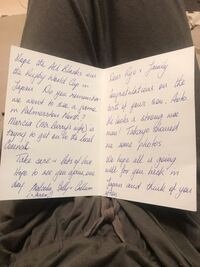 Hope the All Blacks win
the Rugby World Cup in
Japan. Do you remember
we went to see a game
in Palmerston North?
Marcia (Mr Berry's wife) is
trying to get on to the local
Council.
Take care - lots of love
hope to see you again one
day.
Dear Ryo & Family
Congratulations on the
birth of your son,
He looks a strong wee
man! Takayo showed
me some photos.
We hope all is going
well for you back in
Japan and think of you
often